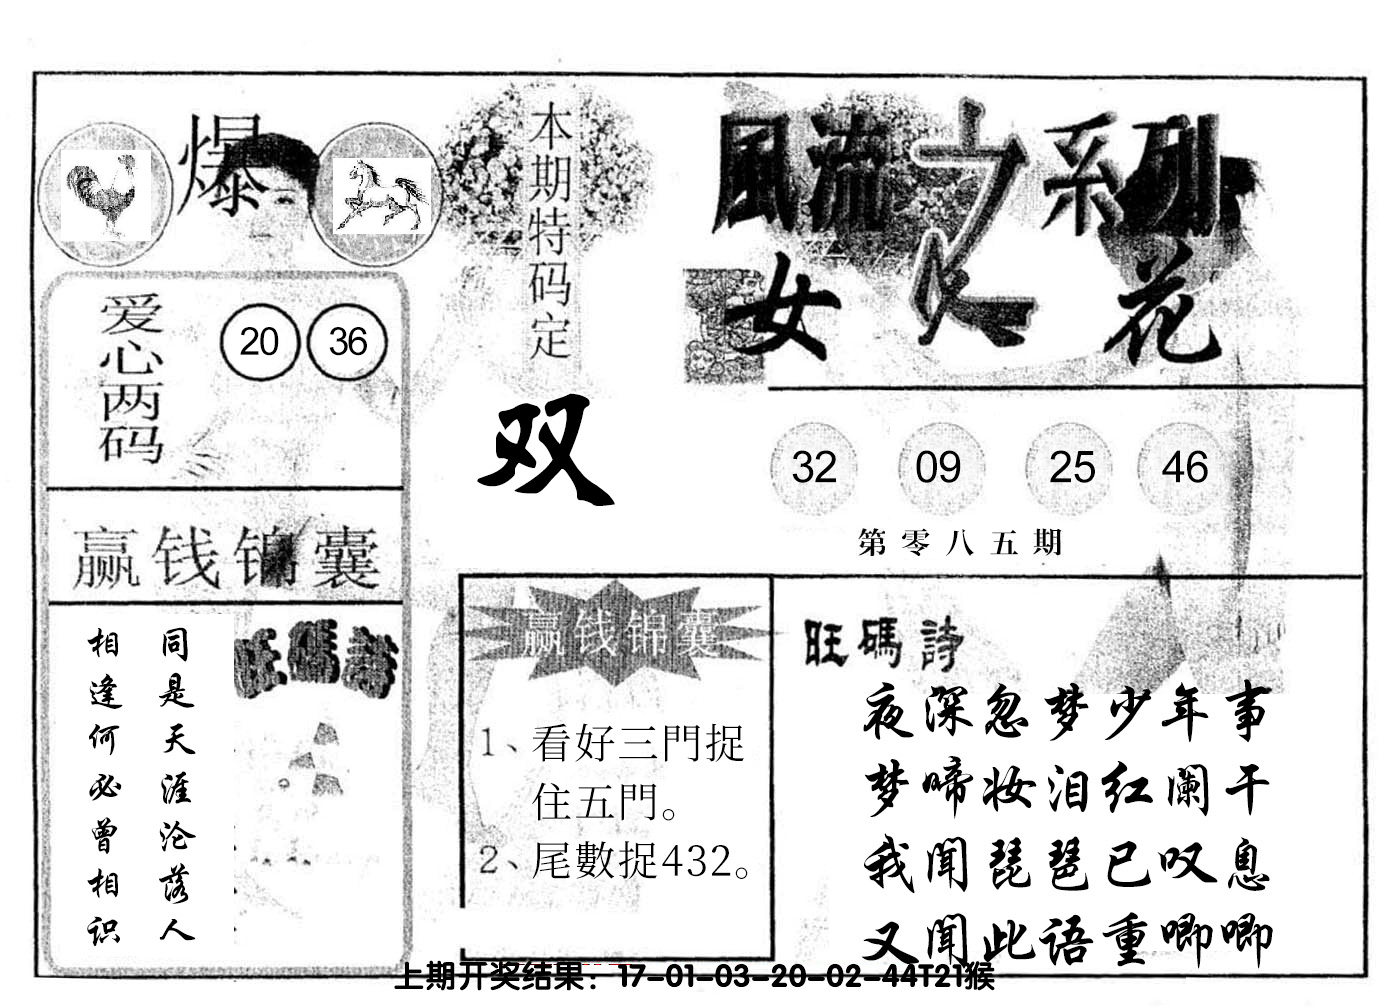 爆
爱心两码
20 36
赢钱锦囊
同是天涯沦落人
相逢何必曾相识
旺碼詩
本期特码定
双
風流之系列
女人花
32 09 25 46
第零八五期
赢钱锦囊
1、看好三門捉
住五門。
2、尾數捉432。
旺碼詩
夜深忽梦少年事
梦啼妆泪红阑干
我闻琵琶已叹息
又闻此语重唧唧
上期开奖结果：17-01-03-20-02-44T21猴